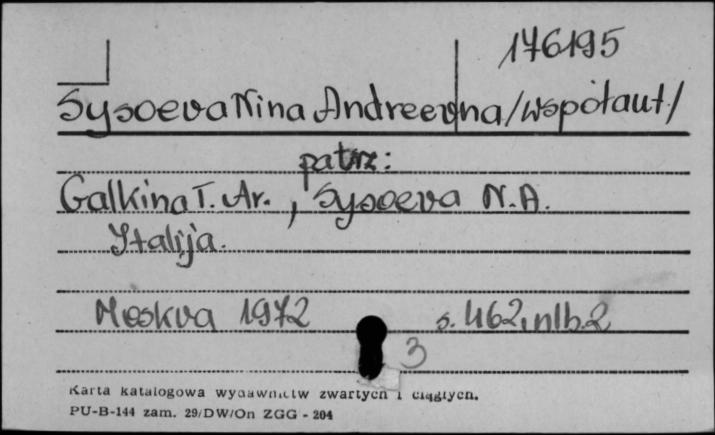 176195
Sysoeva Nina Andreevna /współaut/
patrz:
Galkina T. Ar., Sysoeva N.A.
Italija.
Moskva 1972 s. 462, nlb. 2
3
Karta katalogowa wydawnictw zwartych i ciągłych.
PU-B-144 zam. 29/DW/On ZGG - 204